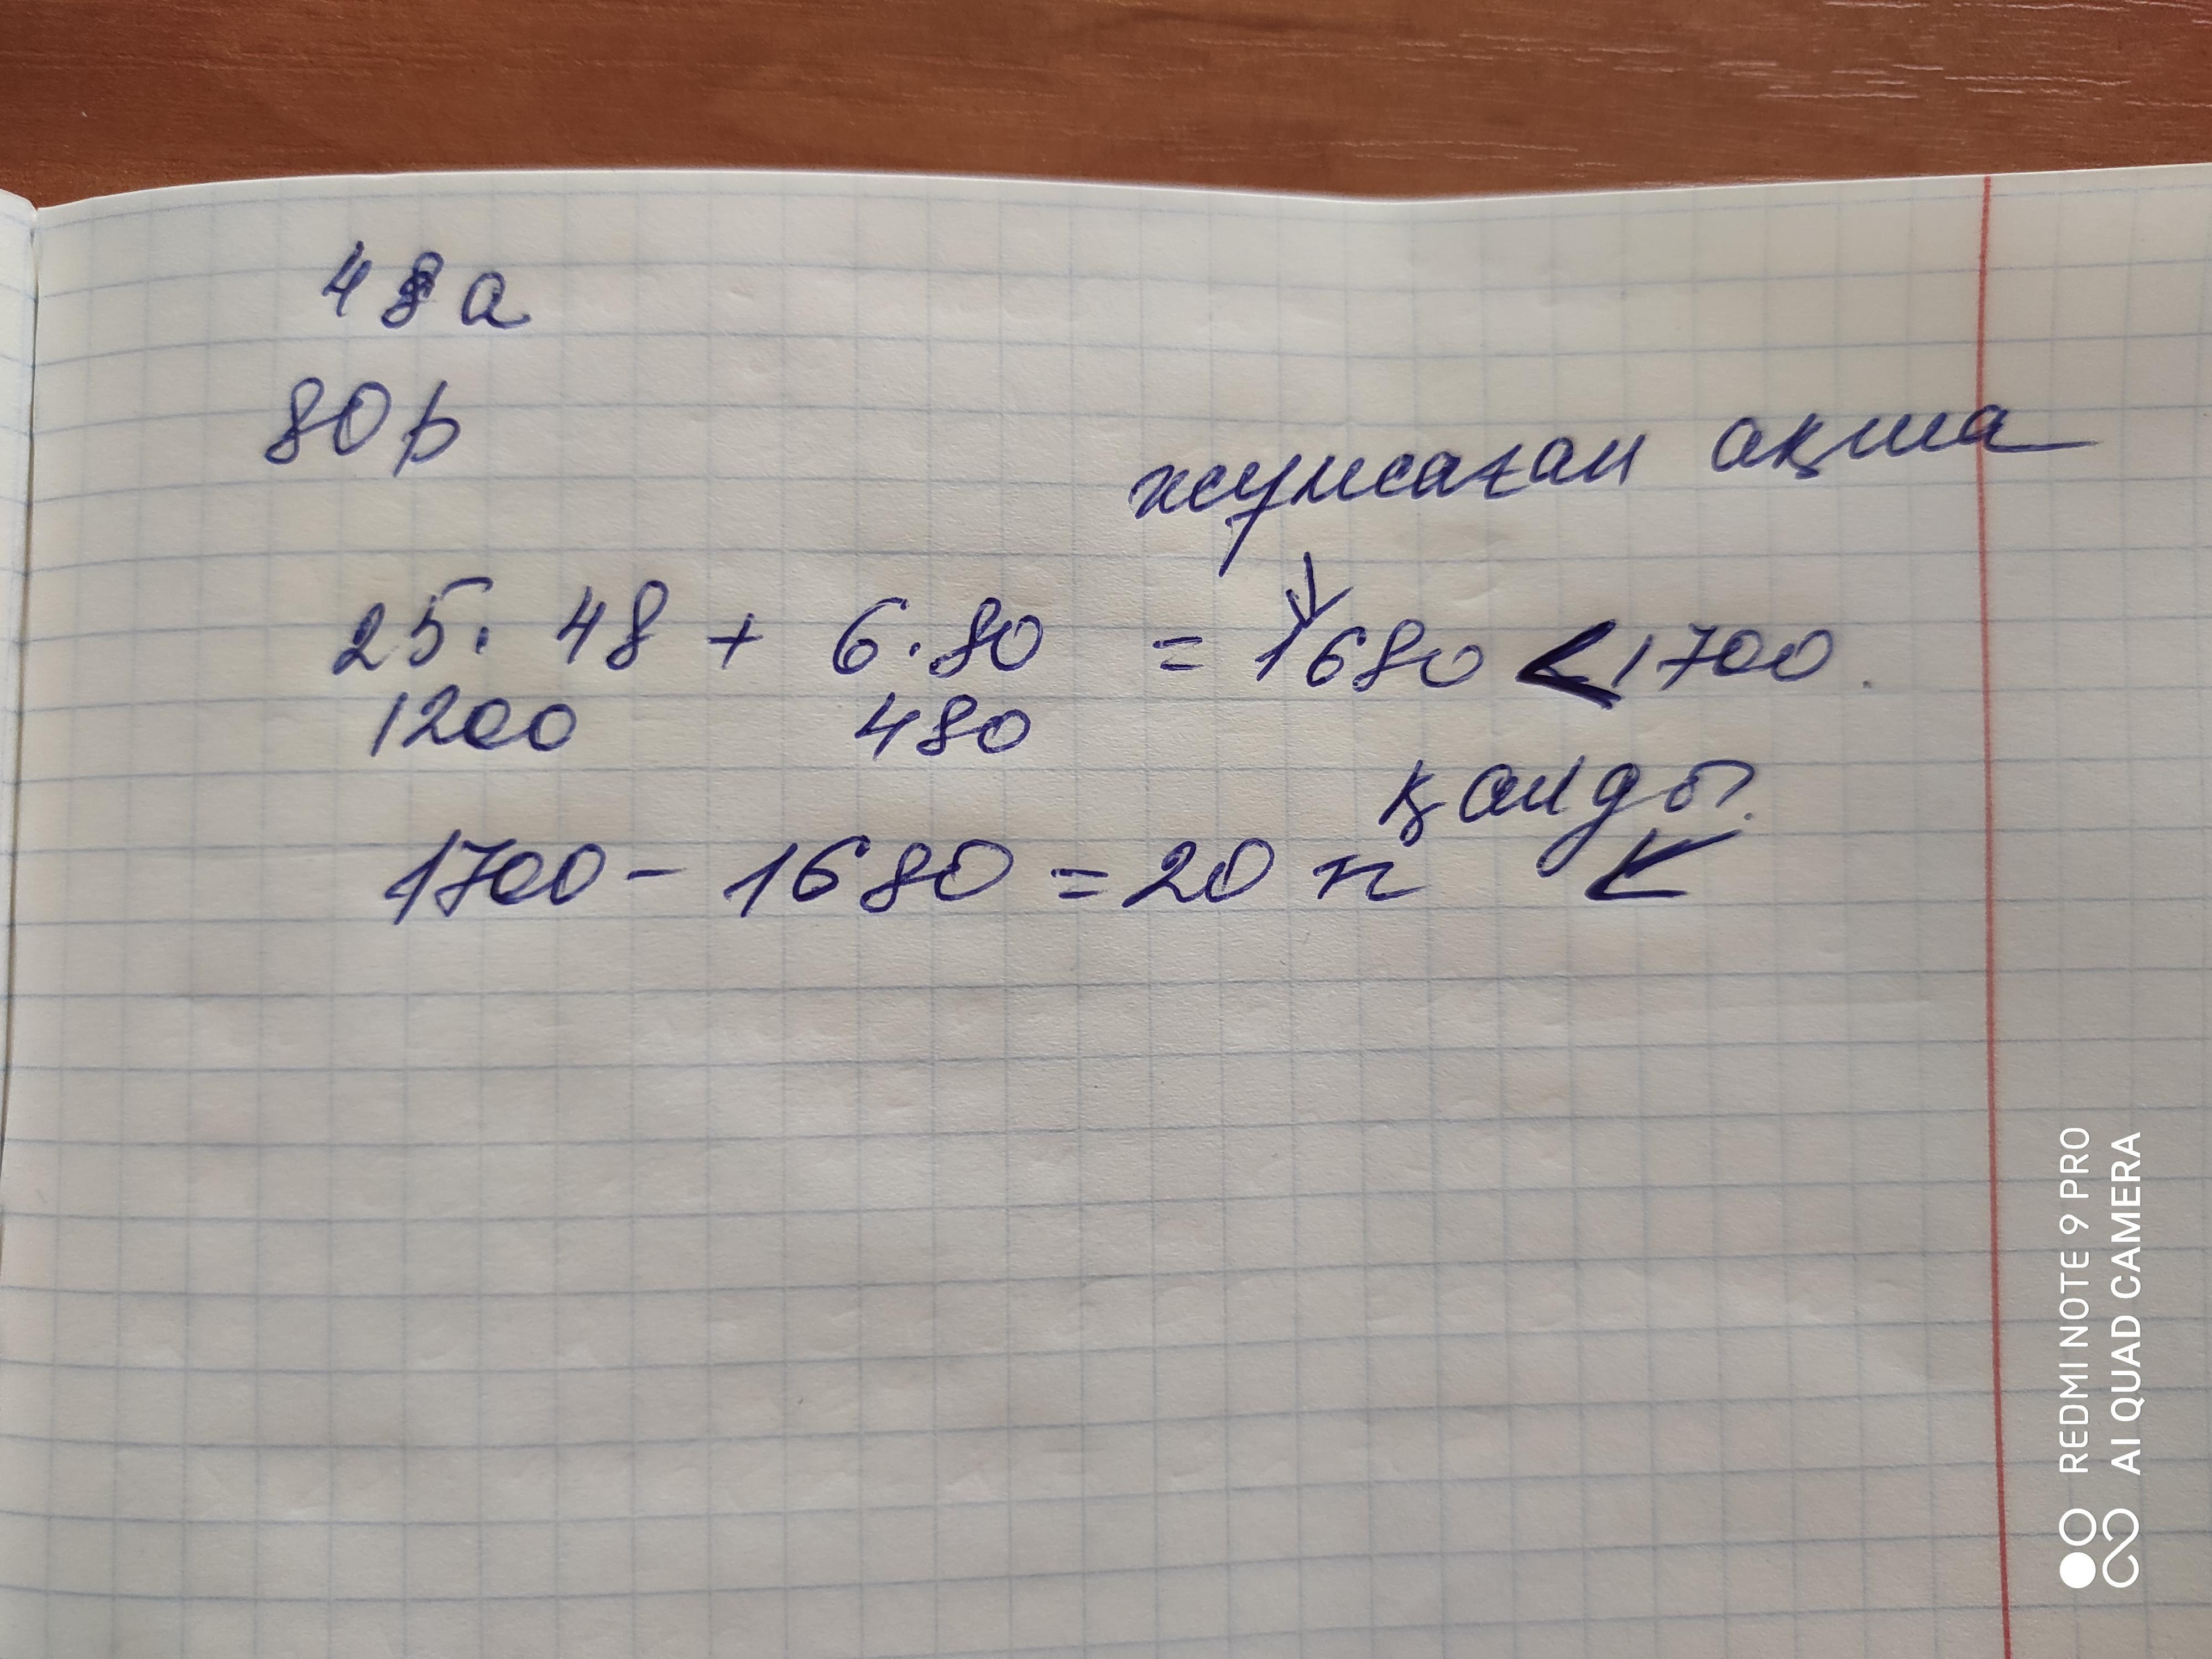 48 а
80 р
жұмсаған ақша
25. 48 + 6.80 = 1680 < 1700.
1200 480
қалды.
1700 - 1680 = 20 п
REDMI NOTE 9 PRO
AI QUAD CAMERA